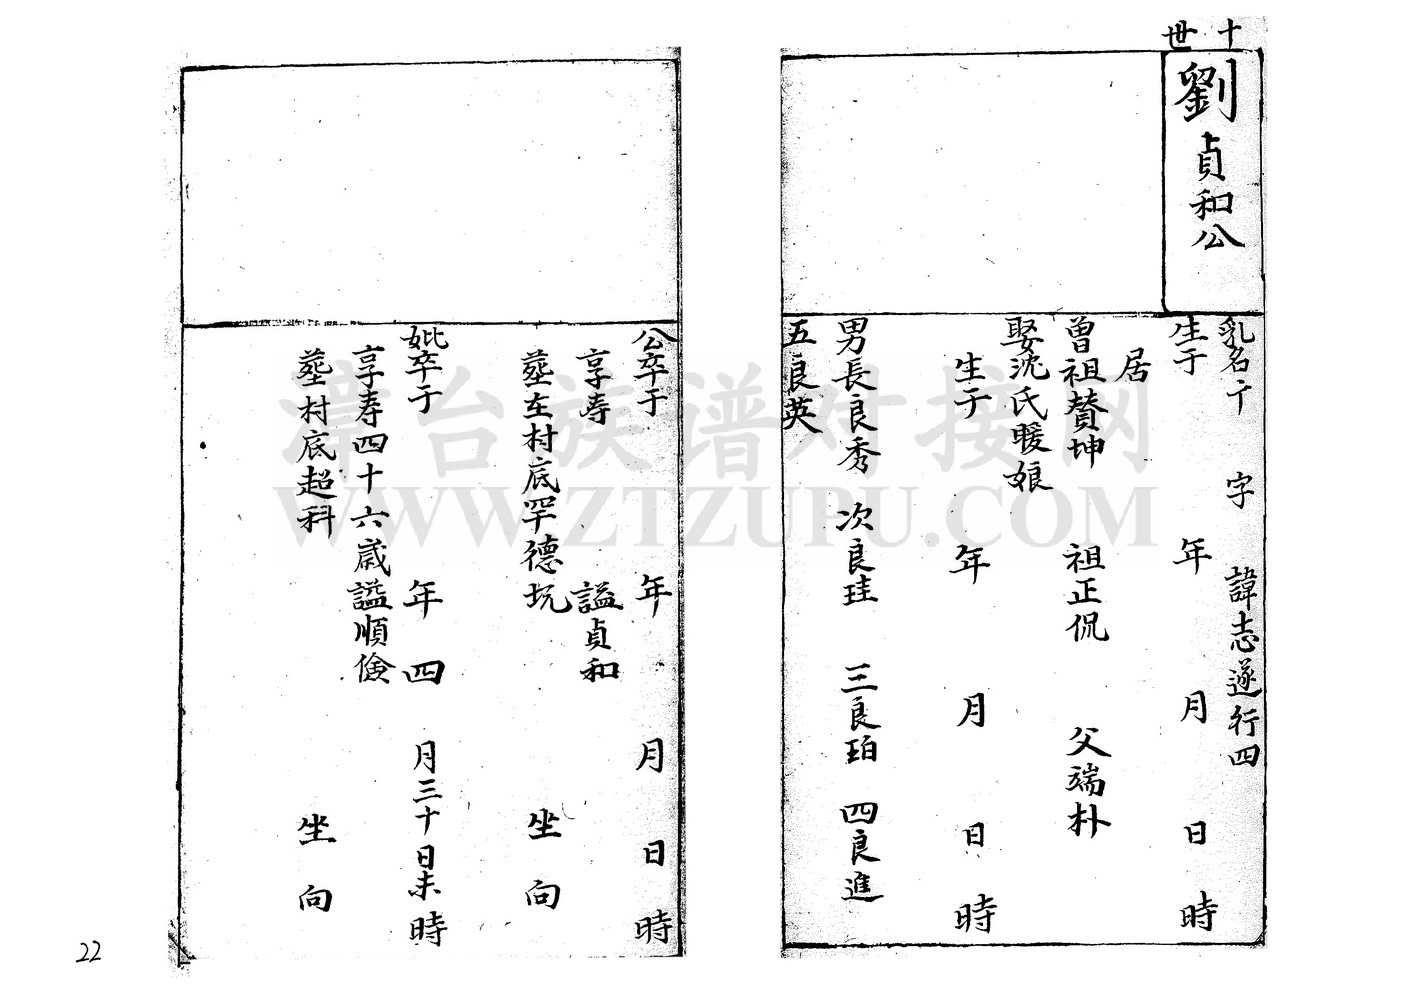 十世
劉貞和公
乳名丁 字 諱志遂行四
生于 年 月 日 時
居
曾祖贊坤 祖正侃 父端朴
娶沈氏暖娘
生于 年 月 日 時
男長良秀 次良珪 三良珀 四良進
五良英
公卒于 年 月 日 時
享壽 謚貞和
葬在村底罕德坑 坐 向
妣卒于 年 四 月三十日未時
享寿四十六歲謚順儉
葬村底超科 坐 向
22
漳台族谱对接网
WWW.ZTZUPU.COM